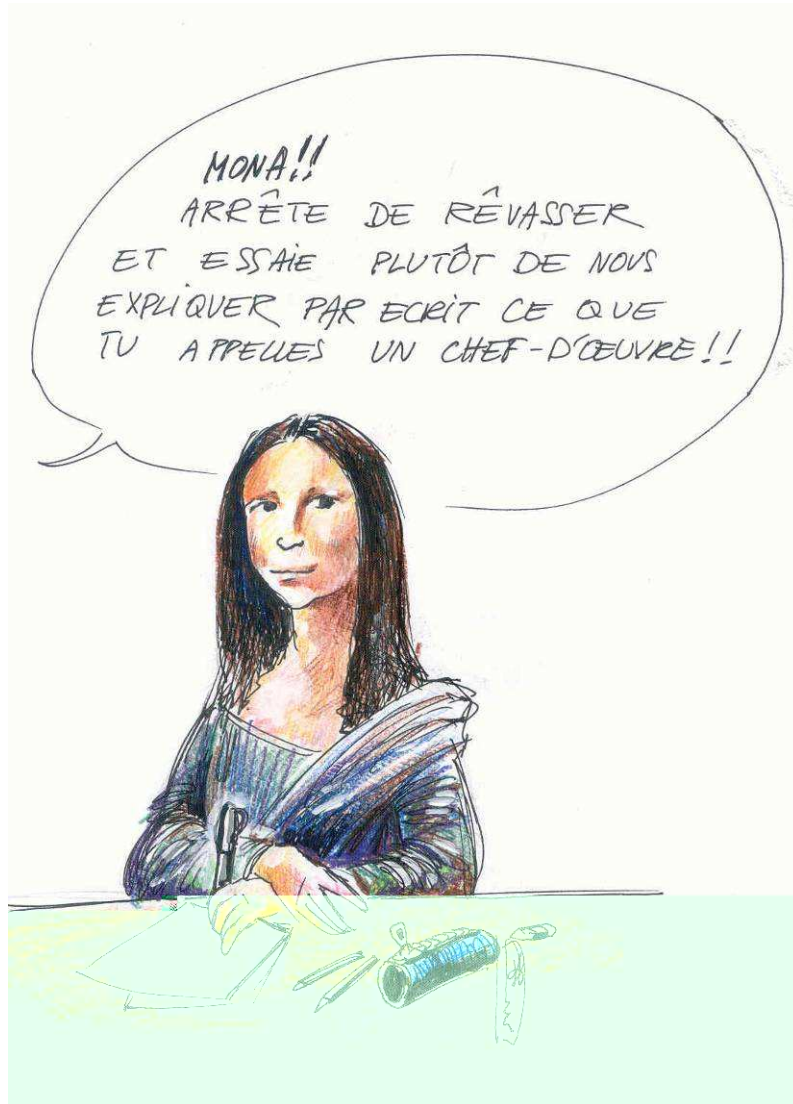 MONA!!
ARRÊTE DE RÊVASSER
ET ESSAIE PLUTÔT DE NOUS
EXPLIQUER PAR ECRIT CE QUE
TU APPELLES UN CHEF-D'ŒUVRE!!